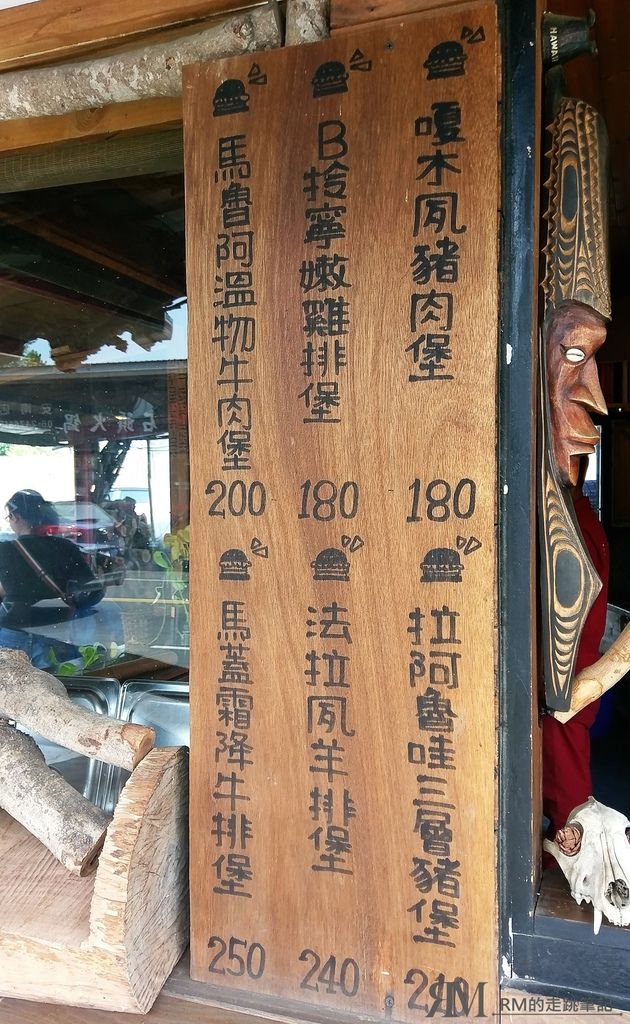 嘎木夙豬肉堡
180
B拎寧嫩雞排堡
180
馬魯阿溫物牛肉堡
200
拉阿魯哇三層豬堡
法拉夙羊排堡
240
馬蓋霜降牛排堡
250
HAWAII
RM的走跳筆記